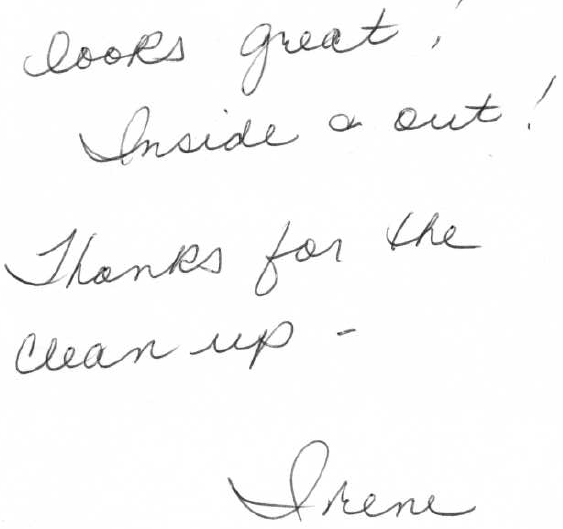 looks great!
Inside & out!
Thanks for the
clean up -
Irene